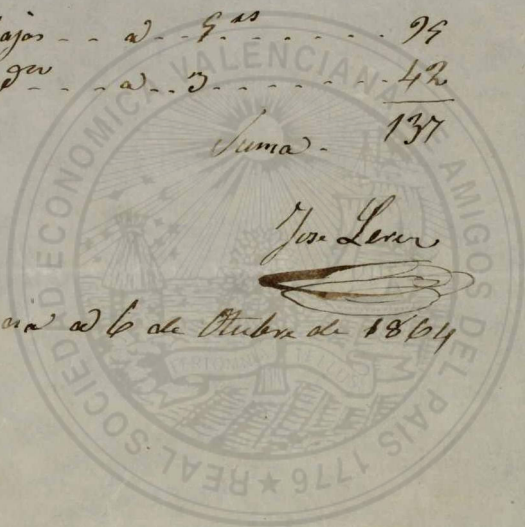 ajos - - a - - 5 as - - - - - - 95
a - - 3 - - - - - - - - 42
137
Suma -
Jose
a 6 de Otubre de 1864
REAL SOCIEDAD ECONOMICA VALENCIANA DE AMIGOS DEL PAIS 1776